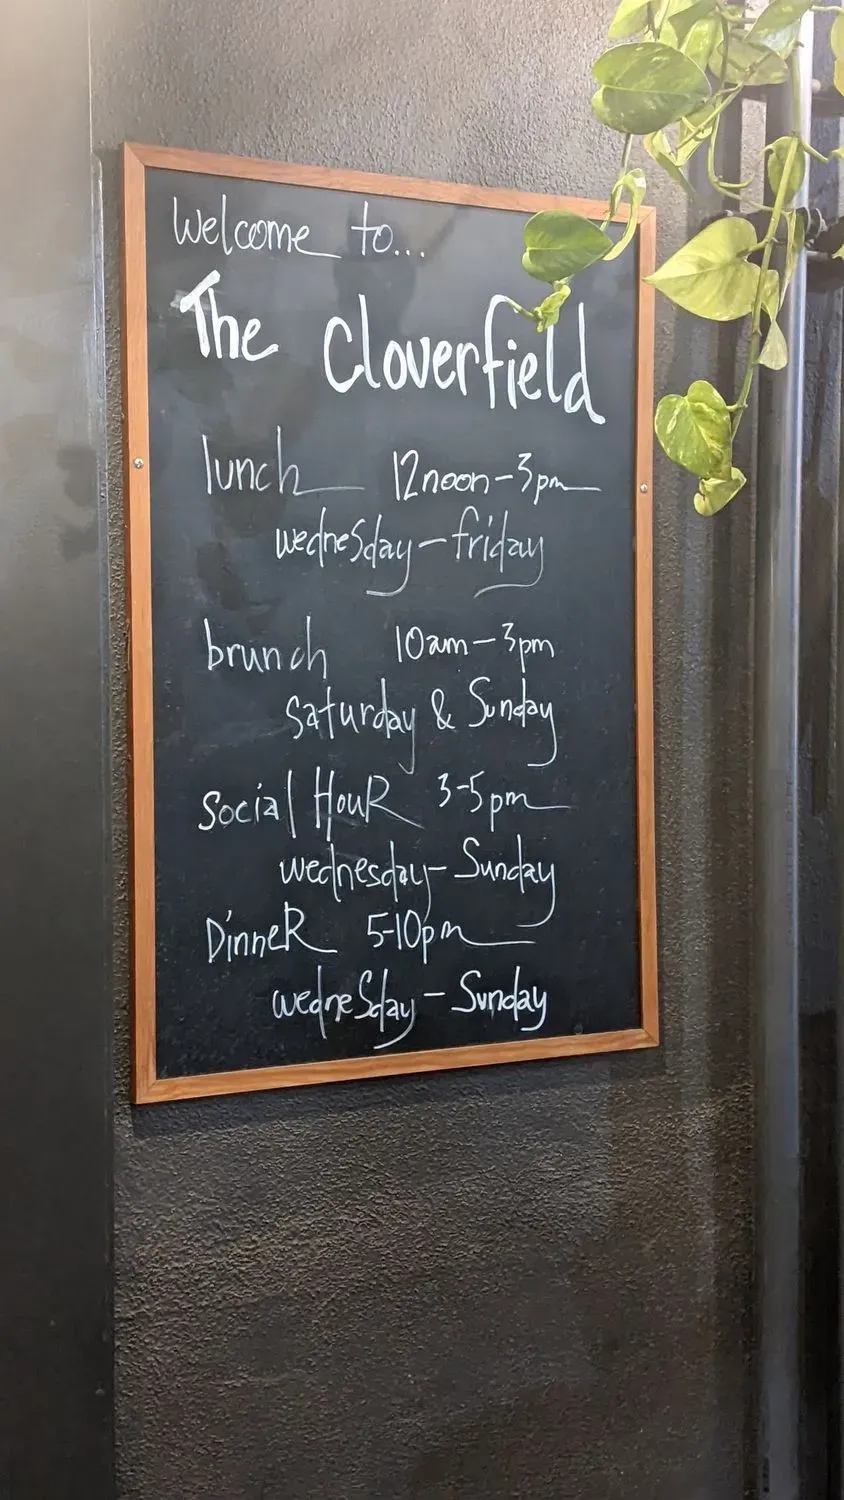 Welcome to...
The Cloverfield
lunch 12noon-3pm
wedneSday-friday
brunch 10am-3pm
Saturday & Sunday
Social HouR 3-5pm
wednesday-Sunday
DinneR 5-10pm
wedneSday-Sunday